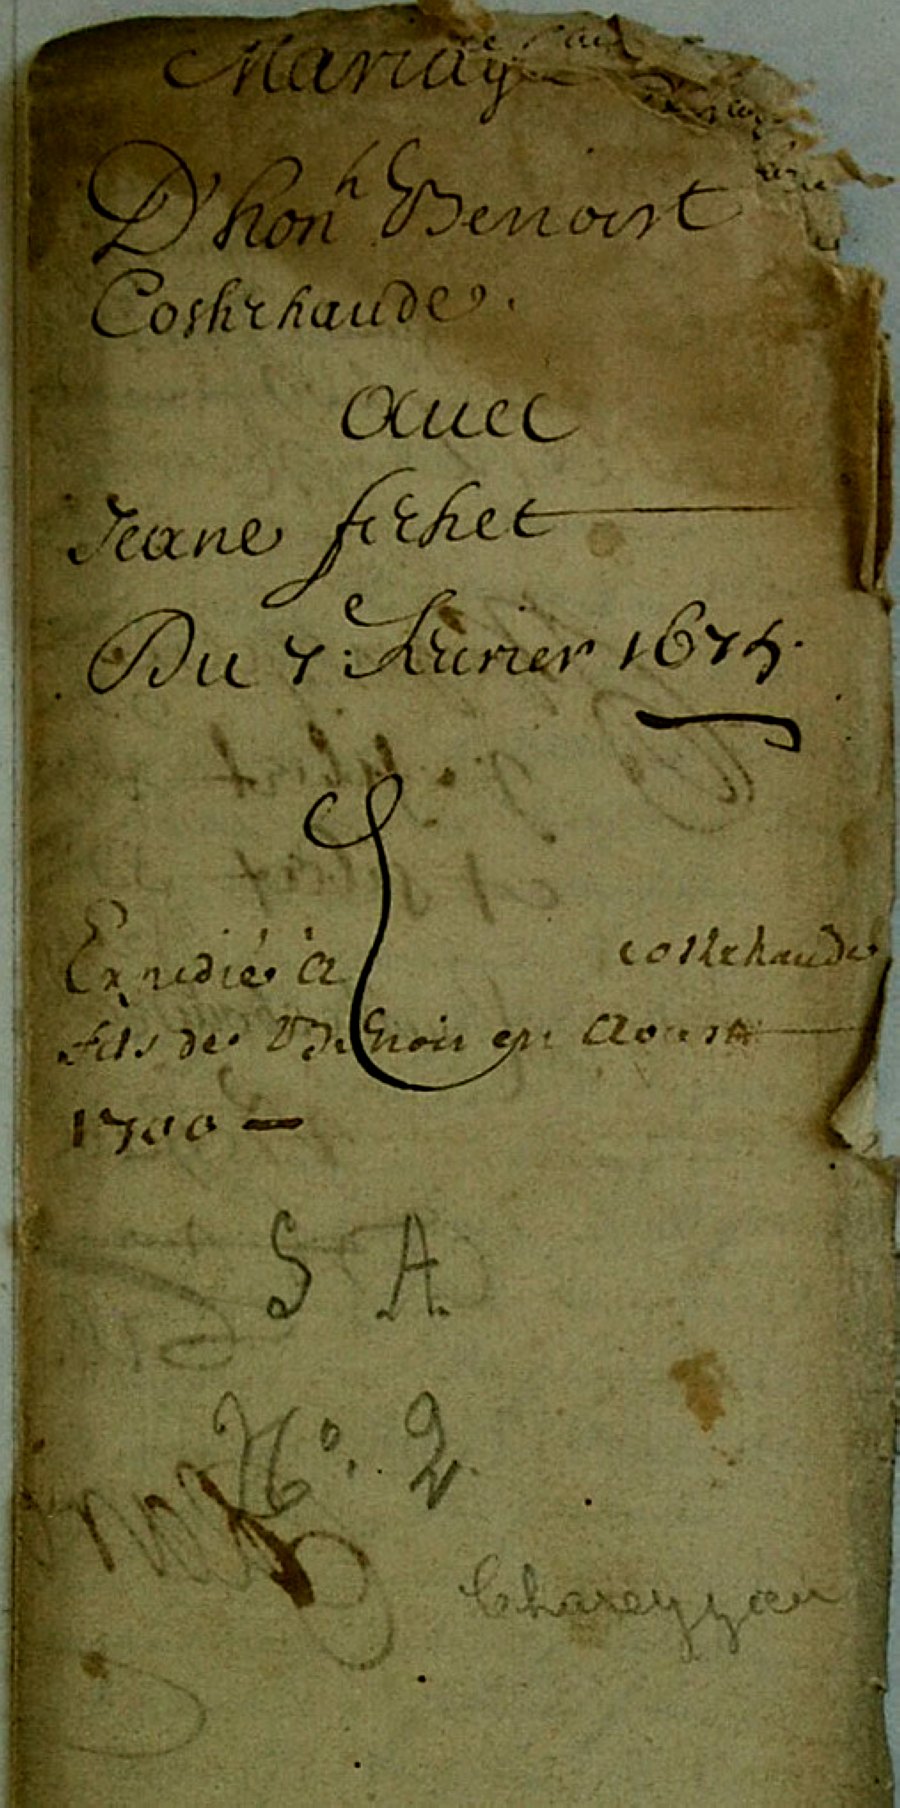 Mariage
D'hon^h Benoist
Costechaude.
Auec
Jeane fichet
Du 7^e feurier 1675.
Expedié a costechaude
fils de Benoit en Aoust
1700 —
S A
N°. 2
Chareyzou